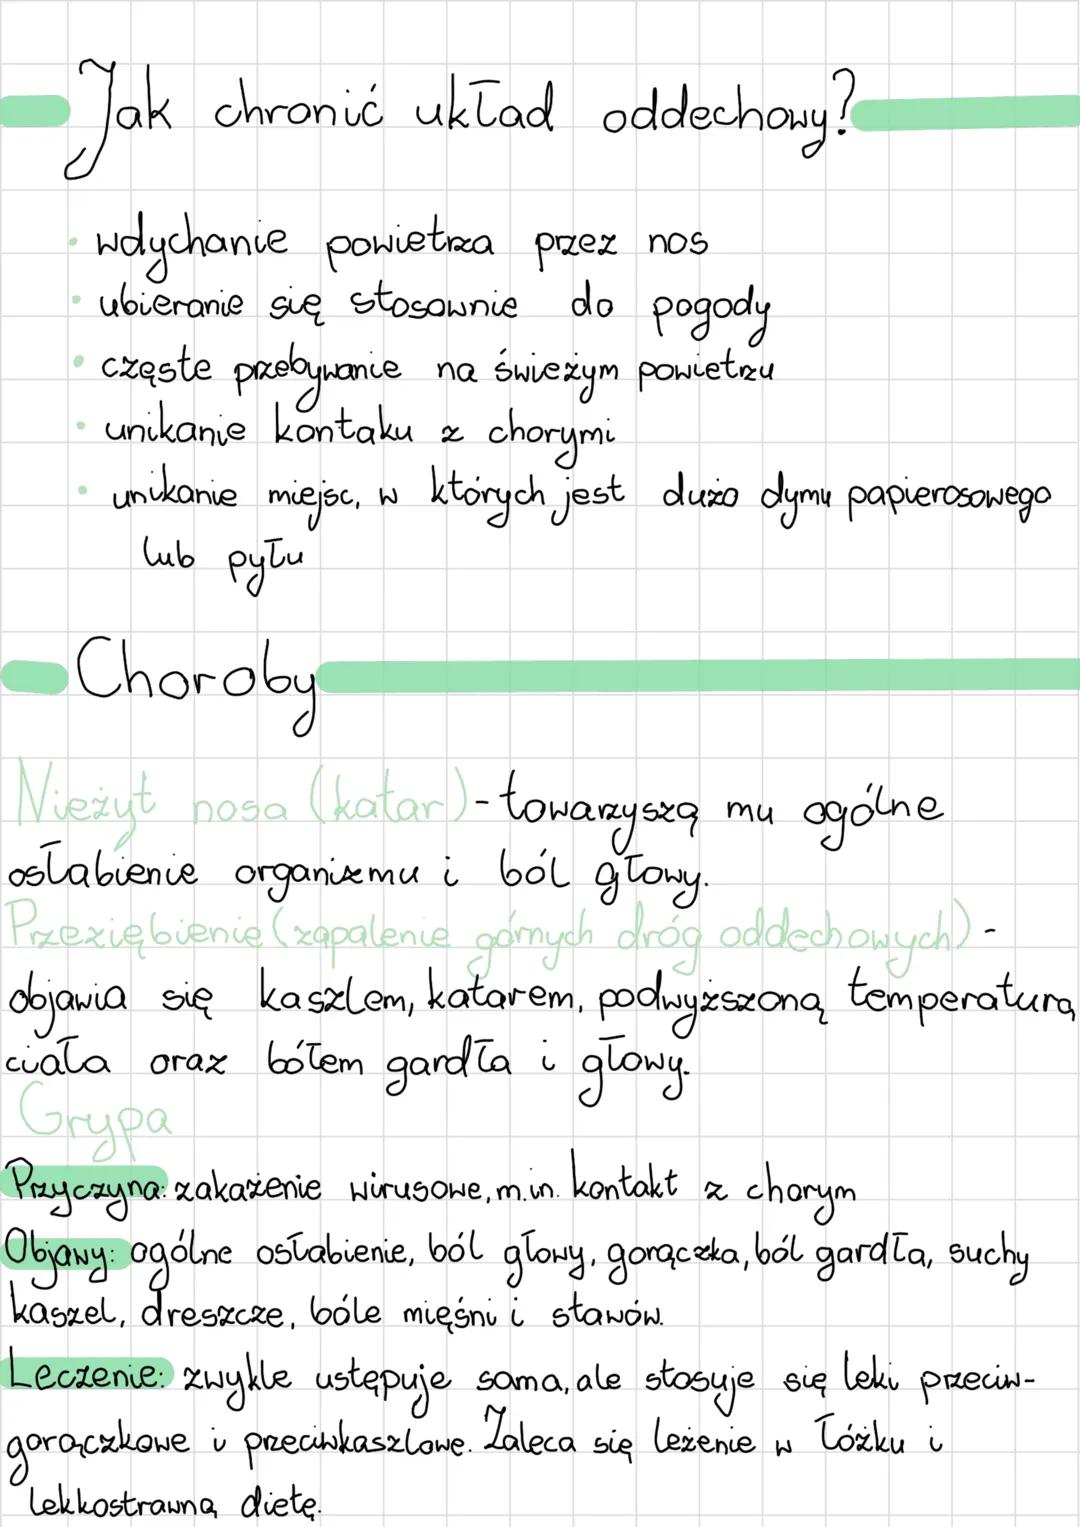 Jak chronić układ oddechowy?
• wdychanie powietrza przez nos
• ubieranie się stosownie do pogody
• częste przebywanie na świeżym powietrzu
• unikanie kontaku z chorymi
• unikanie miejsc, w których jest dużo dymu papierosowego
lub pyłu
Choroby
Nieżyt nosa (katar) - towarzyszą mu ogólne
osłabienie organizmu i ból głowy.
Przeziębienie (zapalenie górnych dróg oddechowych) -
objawia się kaszlem, katarem, podwyższoną temperaturą
ciała oraz bółem gardła i głowy.
Grypa
Przyczyna: zakażenie wirusowe, m.in. kontakt z chorym
Objawy: ogólne osłabienie, ból głowy, gorączka, ból gardła, suchy
kaszel, dreszcze, bóle mięśni i stawów.
Leczenie: zwykle ustępuje sama, ale stosuje się leki przeciw-
gorączkowe i przeciwkaszlowe. Zaleca się leżenie w łóżku i
lekkostrawną dietę.